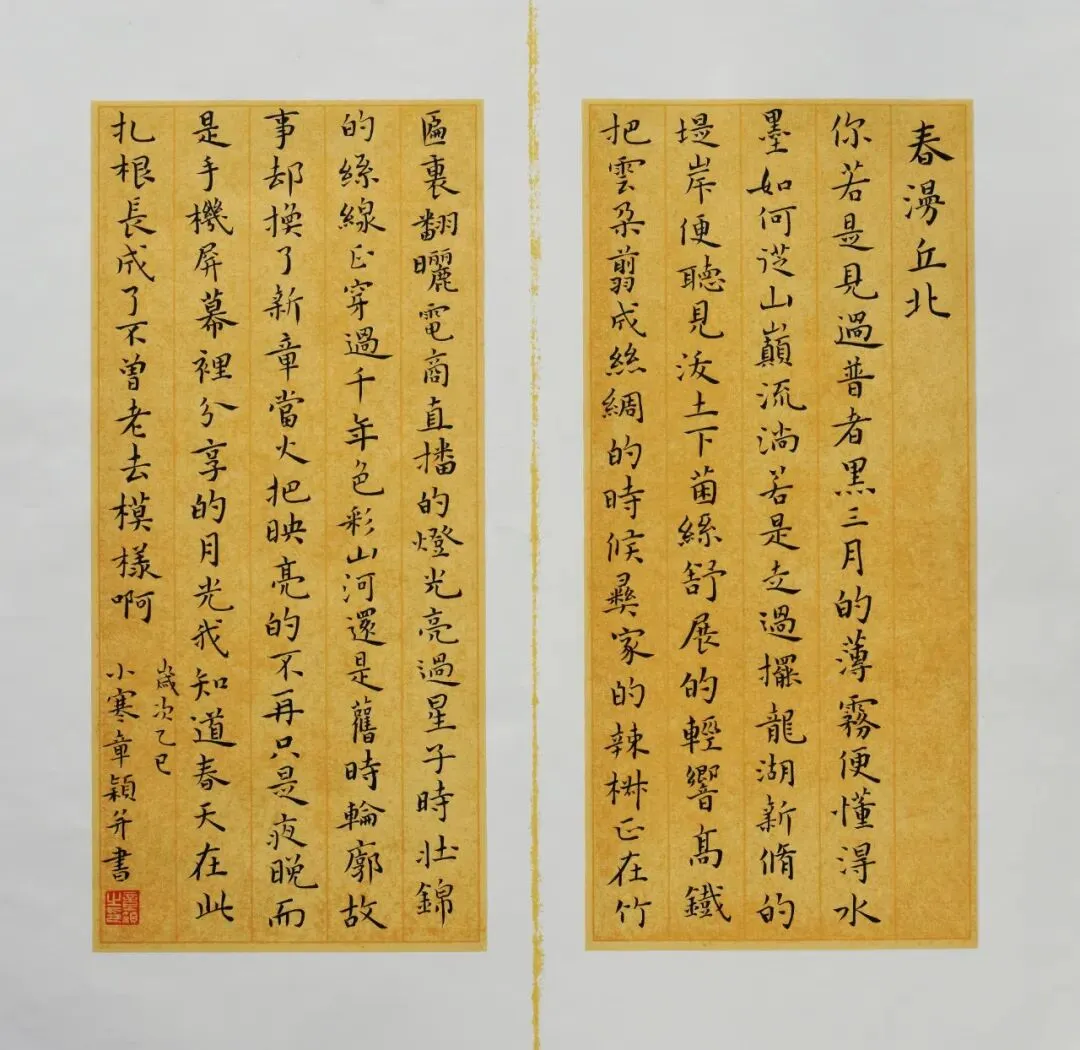 春漫丘北
你若是見過普者黑三月的薄霧便懂得水
墨如何從山巔流淌若是走過擺龍湖新脩的
堤岸便聽見汝土下菌絲舒展的輕響高鐵
把雲朵翦成絲綢的時候彝家的辣椒正在竹
匾裏翻曬電商直播的燈光亮過星子時壯錦
的絲線正穿過千年色彩山河還是舊時輪廓故
事却換了新章當火把映亮的不再只是夜晚而
是手機屏幕裡分享的月光我知道春天在此
扎根長成了不曾老去模樣啊
歲次乙巳
小寒章穎并書